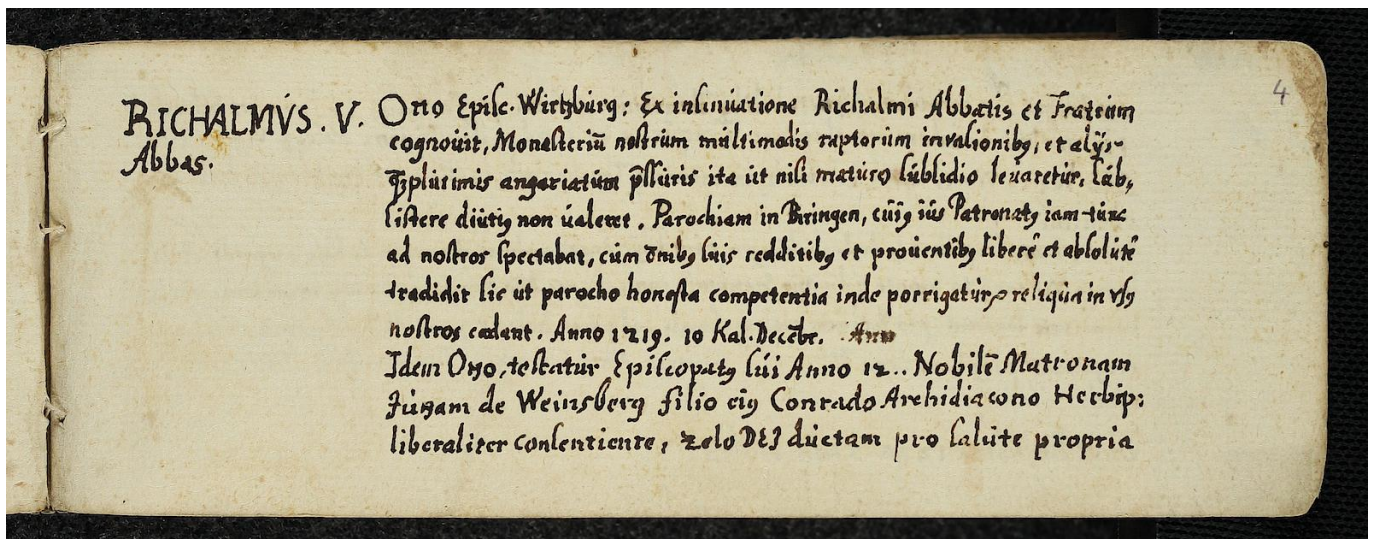 4
RICHALMVS. V.
Abbas.
Otto Episc. Wirtzburg: Ex insinuatione Richalmi Abbatis et Fratrum
cognouit, Monasteriū nostrum multimodis raptorum invasionibꝰ, et alijs
qꝫplurimis angariatum p̄ssuris ita ut nisi maturo subsidio levaretur, sub,
sistere diutiꝰ non ualeret. Parochiam in Biringen, cuiꝰ ius Patronatꝰ iam-tunc
ad nostros spectabat, cum ōnibꝰ suis redditibꝰ et prouentibꝰ liberè et absolutè
tradidit sic ut parocho honesta competentia inde porrigatur, reliqua in vsꝰ
nostros cedant. Anno 1219. 10 Kal. Decēbr. Ann
Idem Otto, testatur Episcopatꝰ sui Anno 12.. Nobilē Matronam
de Weinsberg filio eiꝰ Conrado Archidiacono Herbip:
liberaliter consentiente, zelo DEI ductam pro salute propria